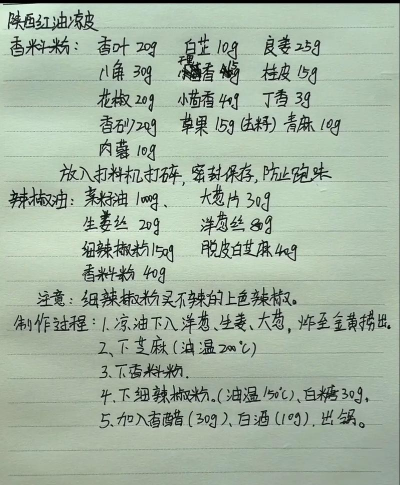 陕西红油凉皮
香料粉： 香叶 20g 白芷 10g 良姜 25g
八角 30g 小茴香 桂皮 15g
花椒 20g 小茴香 40g 丁香 3g
香砂 20g 草果 15g (去籽) 青麻 10g
内蔻 10g
放入打料机打碎，密封保存，防止跑味
辣椒油： 菜籽油 1000g、 大葱片 30g
生姜丝 20g 洋葱丝 80g
细辣椒粉 150g 脱皮白芝麻 40g
香料粉 40g
注意：细辣椒粉买不辣的上色辣椒。
制作过程：1、凉油下入洋葱、生姜、大葱，炸至金黄捞出。
2、下芝麻 (油温200℃)
3、下香料粉.
4、下细辣椒粉。(油温150℃)、白糖30g。
5、加入香醋 (30g)、白酒 (10g)、出锅。